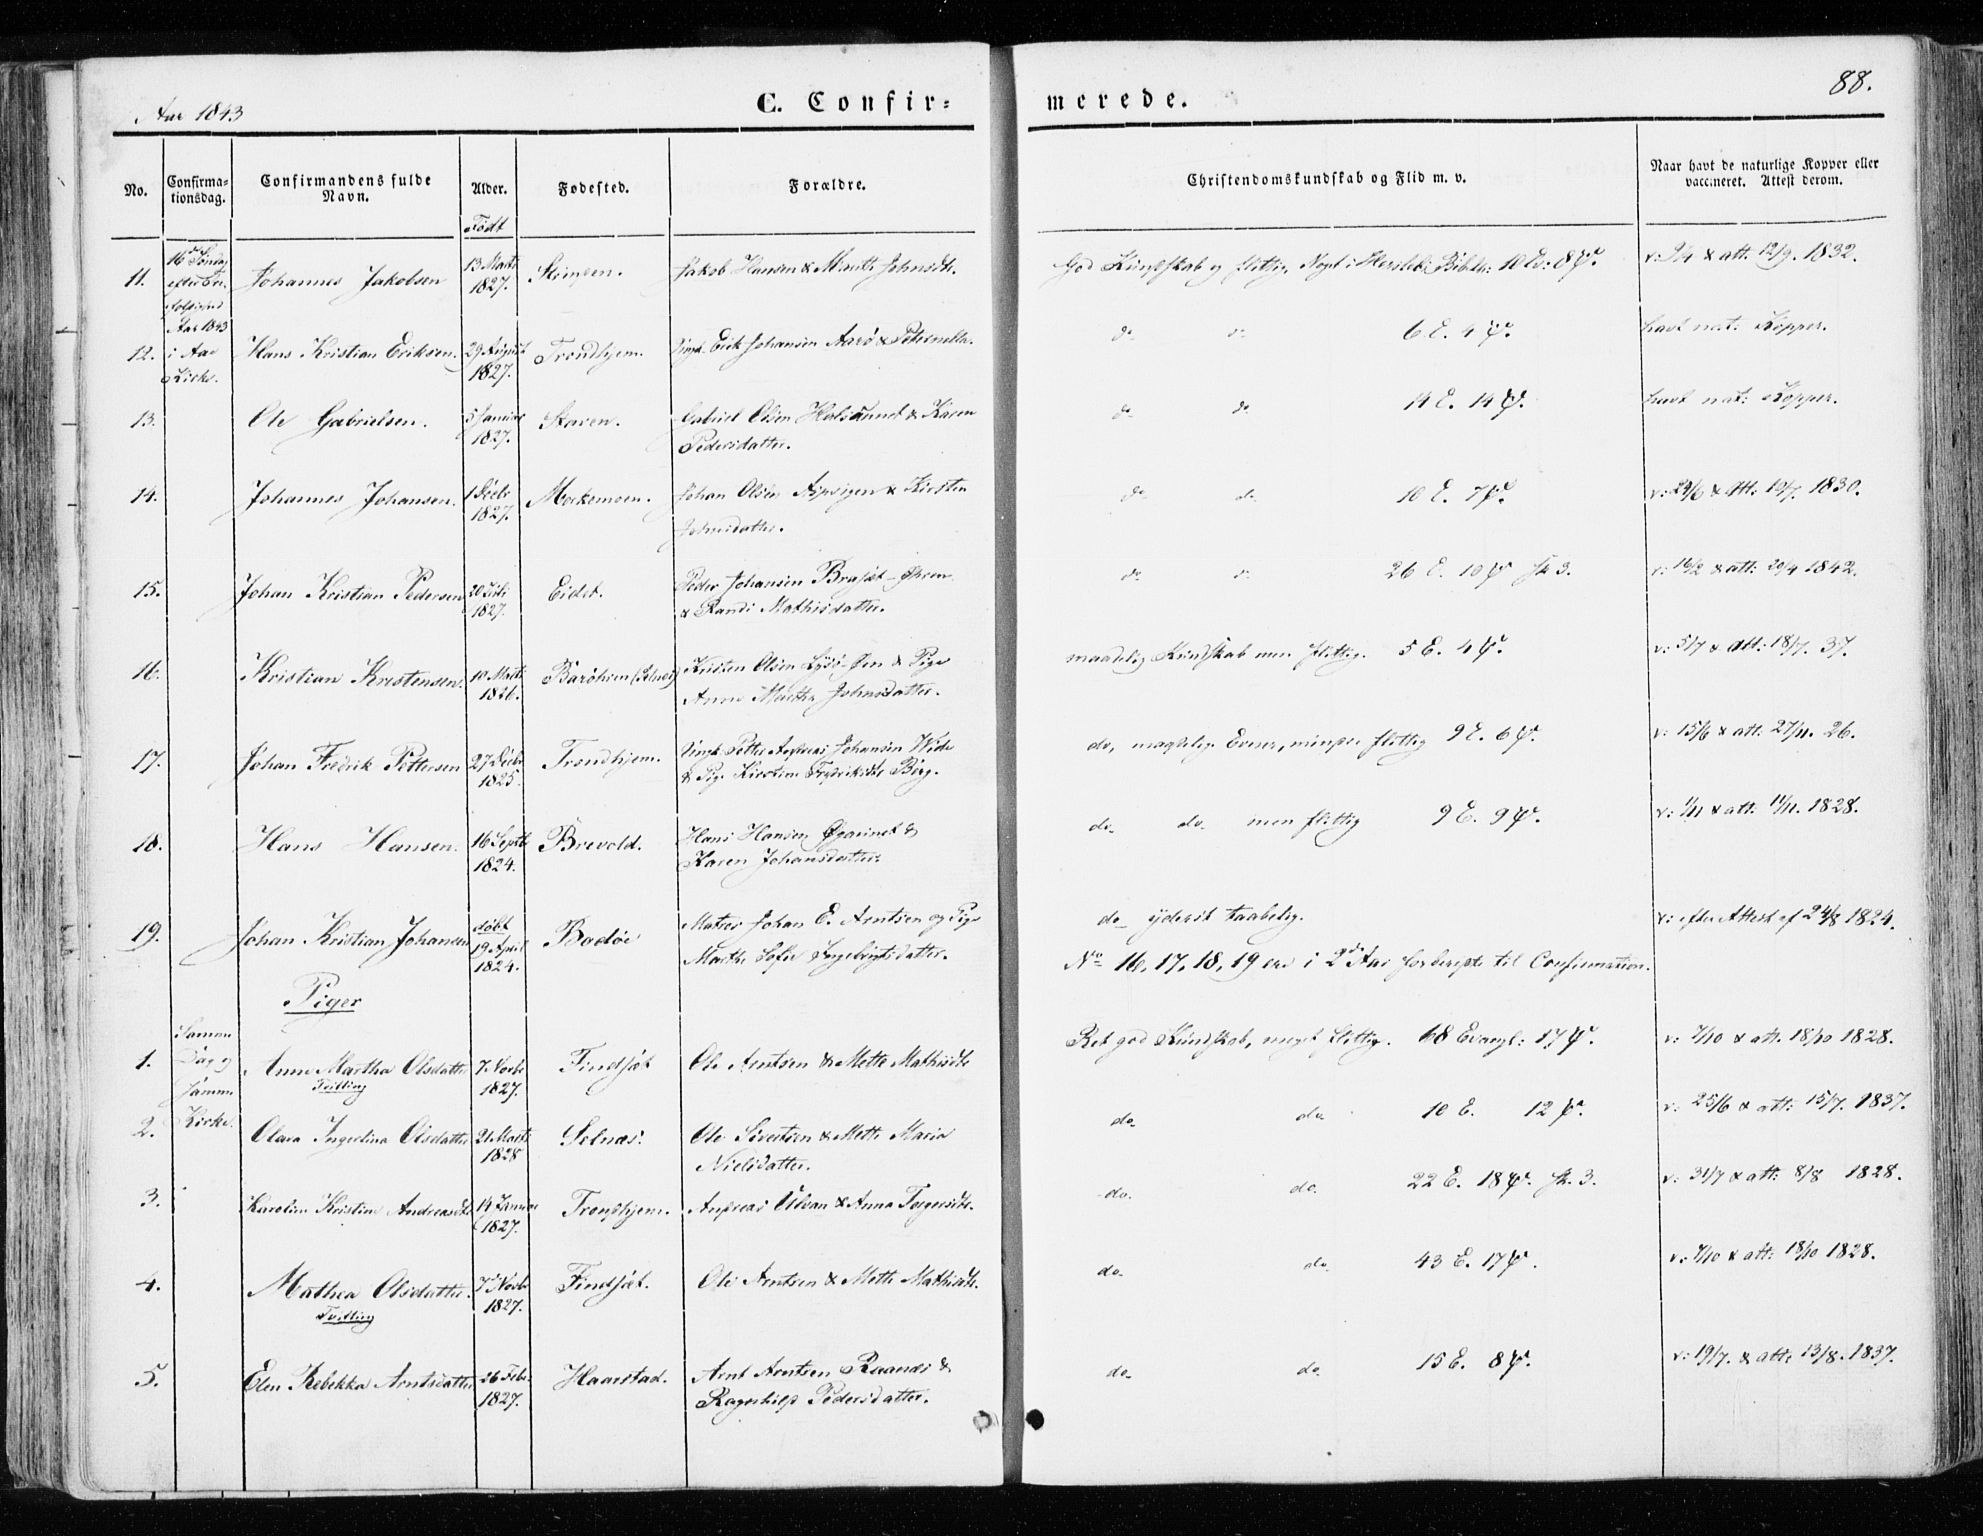 Aar 1843
C. Confirmerede.
88.
No.
Confirmationsdag.
Confirmandens fulde Navn.
Alder.
Fødested.
Forældre.
Christendomskundskab og Flid m. v.
Naar havt de naturlige Kopper eller vaccineret. Attest derom.
Født
16 Søndag efter
Aar 1843
i Aae
Kirke.
11. Johannes Jakobsen 13 Marts 1827. Jakob Hansen & Marith Johnsdtr. God Kundskab og flittig. 10 Ev: 8 v: 9/4 & att: 12/9. 1832.
12. Hans Kristian Eriksen. 29 August 1827. Trondhjem. Erik Johansen Aarø & Peternella. do do 6 E. 4 havt nat: Kopper.
13. Ole Gabrielsen. 5 Januar 1827. Staven. Gabriel Olsen & Karen Pedersdatter. do do 14 E. 14 havt nat: Kopper.
14. Johannes Johansen. 1 Decbr 1827. Mokemoen. Johan Olsen & Kirsten Johnsdatter. do do 10 E. 7 v: 29/6 & att: 1830.
15. Johan Kristian Pedersen 20 Juli 1827. Eidet. Peder Johansen & Randi Mathisdatter. do do 26 E. 10 sk 3. v: 16/2 & att: 20/4 1842.
16. Kristian Kristensen. 10 Marts 1826. Kristen Olsen & Pige Anne Martha Johnsdatter. maadelig Kundskab men flittig. 5 E. 4 v: 5/7 & att: 18/7. 37.
17. Johan Fredrik Pettersen 27 Decbr 1825. Trondhjem. Petter Andreas Johansen Wide & Pige Kirstine Fredriksdtr Berg. do, maadelige Evner, mindre flittig 9 E. 6 v: 15/6 & att: 27/11. 26.
18. Hans Hansen. 16 Septb 1824. Brevold. Hans Hansen & Karen Johansdatter. do do men flittig 9 E. 9 v: 1/11 & att: 11/11. 1828.
19. Johan Kristian Johansen døbt 19 April 1824. Bodøe Matros Johan E. Arntsen og Pige Marthe Sofie Ingebrigtsdatter. do yderst taabelig. v: efter Attest af 24/8 1824.
No 16, 17, 18, 19 ere i 2det Aar forberedte til Confirmation.
Piger
Samme
Dag og
Samme
Kirke.
1. Anne Martha Olsdatter Tvilling 7 Novbr 1827. Findsæt Ole Arntsen & Mette Mathisdtr Ret god Kundskab, meget flittig. 68 Evangl: 17 v: 7/10 & att: 18/10 1828.
2. Olava Ingerlina Olsdatter 21 Marts 1828 Selnæs. Ole Sivertsen & Mette Maria Nielsdatter. do do 10 E. 12 v: 25/6 & att: 15/7. 1837.
3. Karoline Kristine Andreasdtr 14 Januar 1827. Trondhjem. Andreas Ulvan & Anna Torgersdtr. do. do. 22 E. 18 sk. 3. v: 31/7 & att: 8/8 1828.
4. Mathea Olsdatter. Tvilling 7 Novbr 1827. Findsæt. Ole Arntsen & Mette Mathisdtr. do do 43 E. 17 v: 7/10 & att: 18/10 1828.
5. Elen Rebekka Arntsdatter 26 Febr 1827. Haarstad. Arnt Arntsen Raanes & Ragnhild Pedersdatter. do do 15 E. 8 v: 19/7. & att: 13/8. 1837.